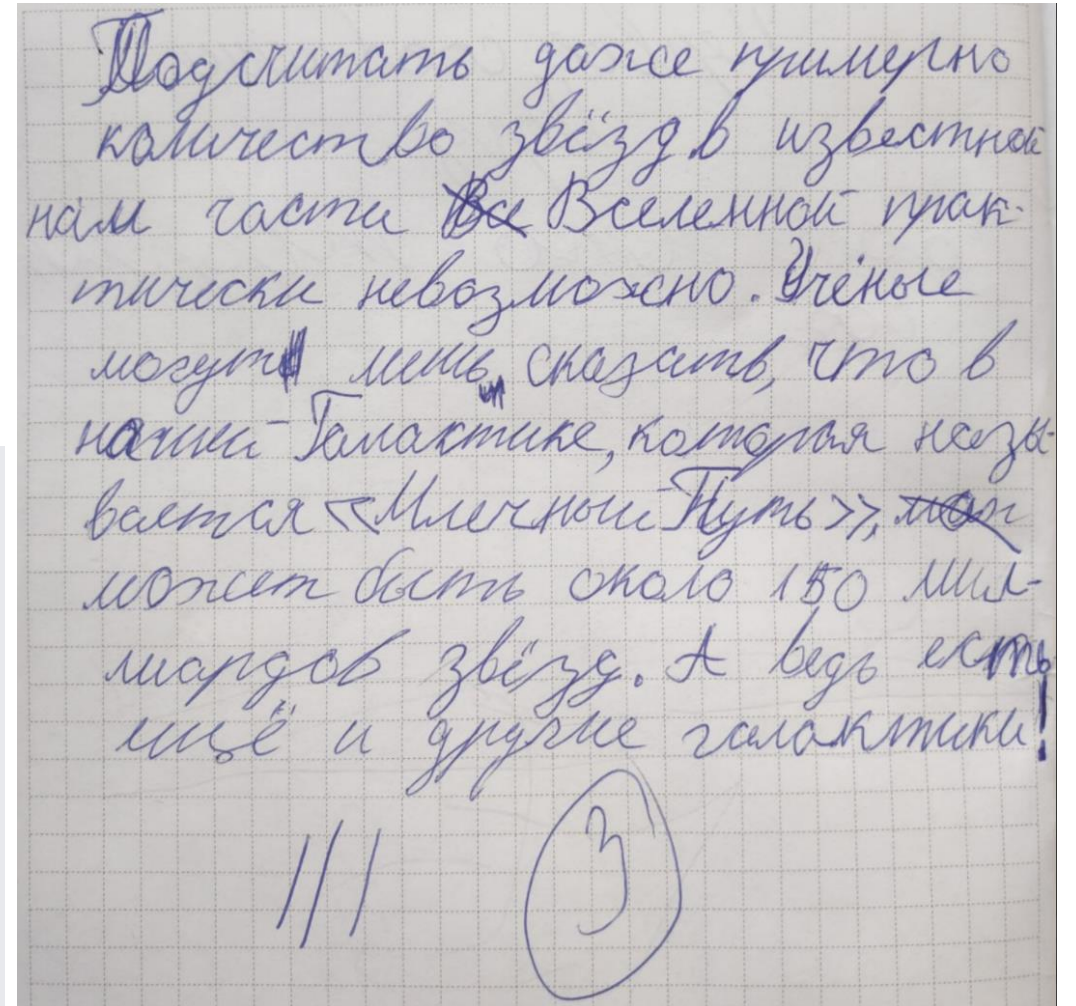 Подсчитать даже примерно
количество звёзд в известной
нам части Все Вселенной прак-
тически невозможно. Учёные
могут лишь сказать, что в
нашей Галактике, которая назы-
вается «Млечный Путь», мож
может быть около 150 мил-
лиардов звёзд. А ведь есть
ищё и другие галактики!
||| 3